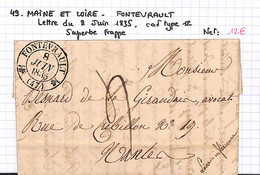 49. MAINE ET LOIRE. FONTEVRAULT
Lettre du 8 Juin 1835. cad type 12
Superbe frappe Net: 12€
FONTEVRAULT
8
JUIN
1835
(47)
Monsieur
de la Giraudais, avocat
Rue de Crébillon N° 19.
Nantes